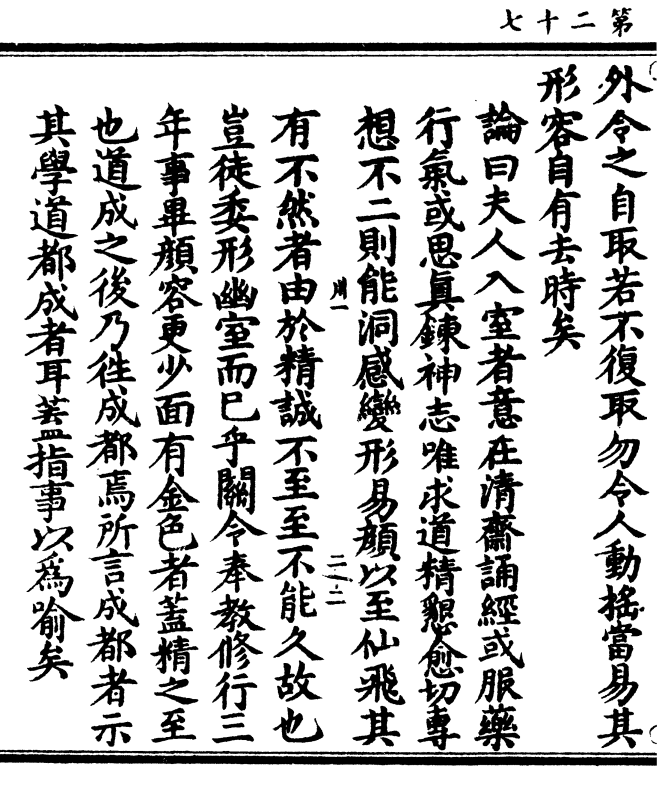 第二十七
外令之自取若不復取勿令人動搖當易其
形容自有去時矣
論曰夫人入室者意在清齋誦經或服藥
行氣或思真鍊神志唯求道精懇愈切專
想不二則能洞感變形易顏以至仙飛其
有不然者由於精誠不至至不能久故也
豈徒委形幽室而已乎關令奉教修行三
年事畢顏容更少面有金色者蓋精之至
也道成之後乃徃成都焉所言成都者示
其學道都成者耳蓋指事以為喻矣